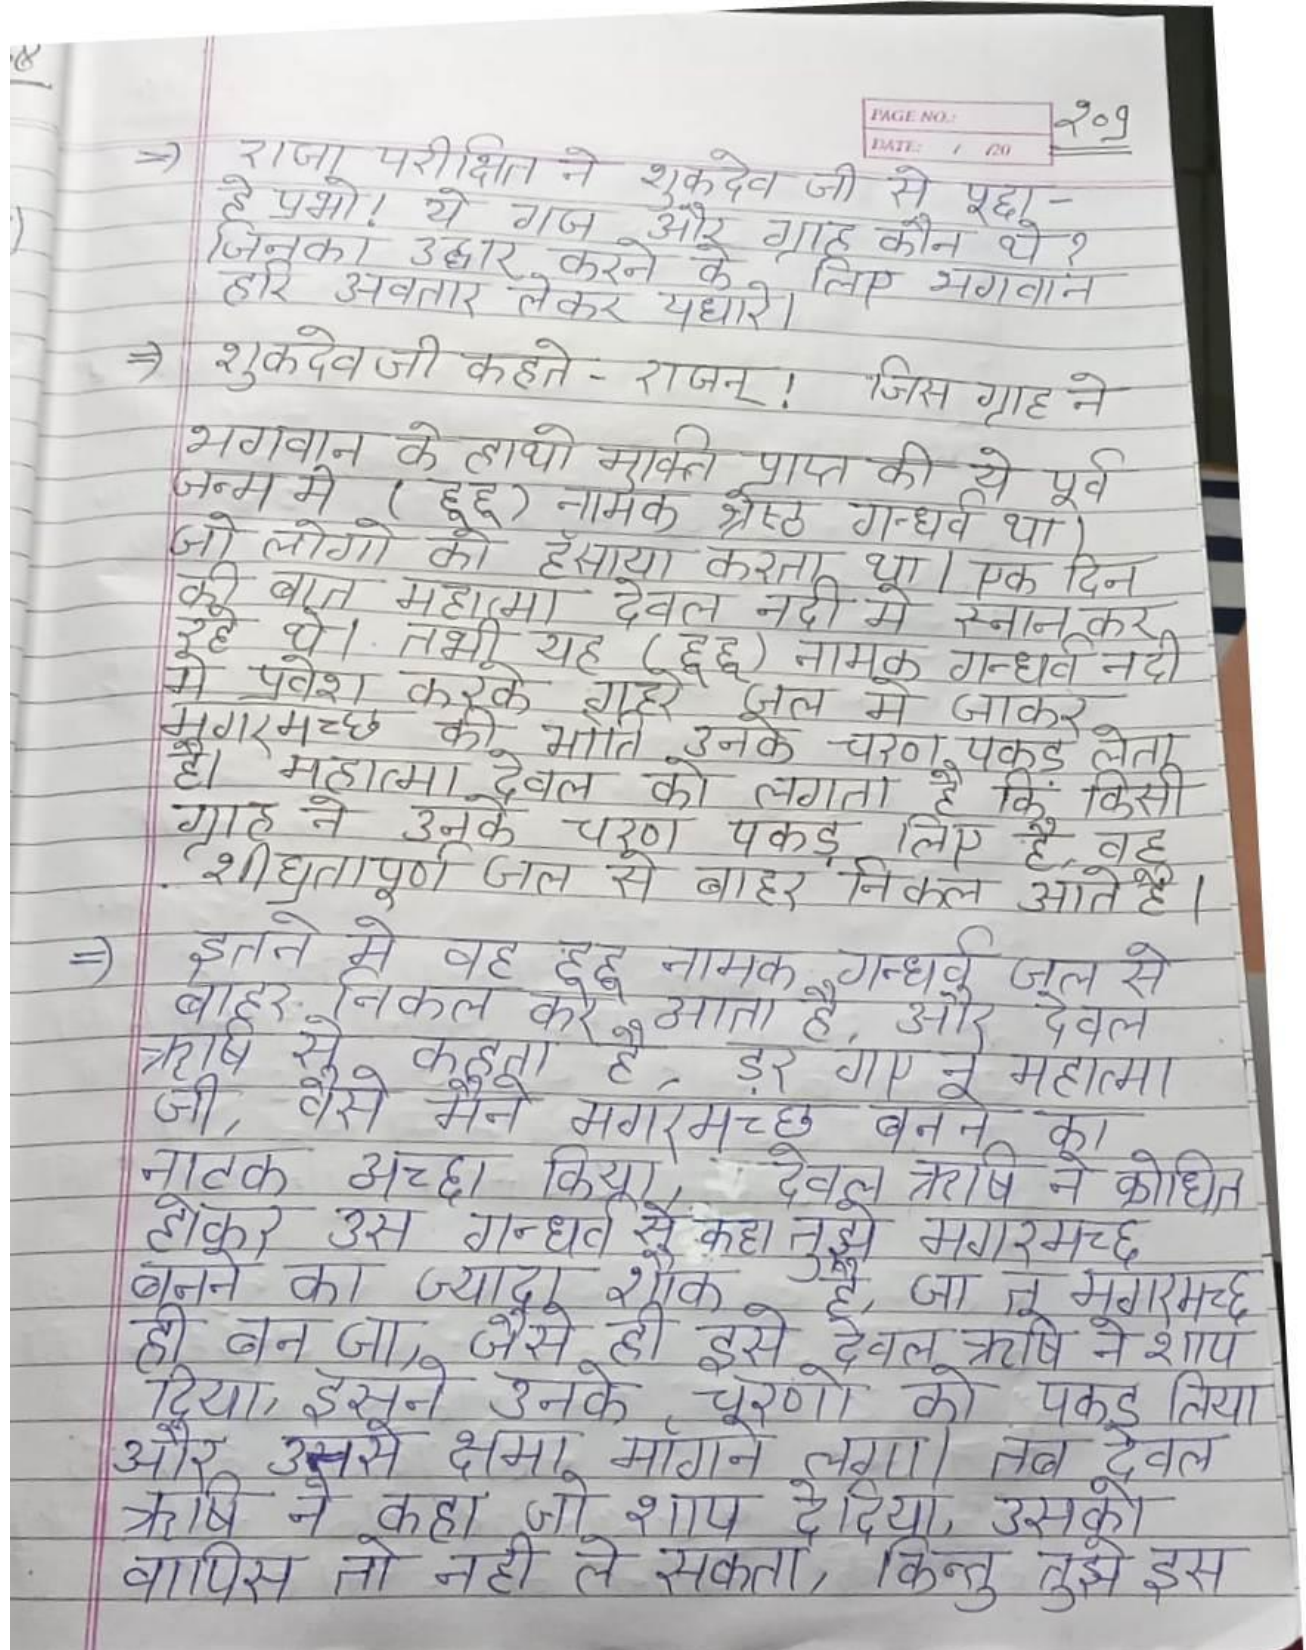 PAGE NO.:
DATE: / /20
२०१
⇒) राजा परीक्षित ने शुकदेव जी से पूछा -
हे प्रभो! ये गज और ग्राह कौन थे?
जिनका उद्धार करने के लिए भगवान
हरि अवतार लेकर पधारे।
⇒) शुकदेव जी कहते - राजन्! जिस ग्राह ने
भगवान के हाथो मुक्ति प्राप्त की ये पूर्व
जन्म मे (हूहू) नामक श्रेष्ठ गन्धर्व था।
जो लोगो को हँसाया करता था। एक दिन
की बात महात्मा देवल नदी मे स्नान कर
रहे थे। तभी यह (हूहू) नामक गन्धर्व नदी
मे प्रवेश करके गहरे जल मे जाकर
मगरमच्छ की भाँति उनके चरण पकड़ लेता
है। महात्मा देवल को लगता है कि किसी
ग्राह ने उनके चरण पकड़ लिए है, वह
शीघ्रतापूर्ण जल से बाहर निकल आते है।
⇒) इतने मे वह हूहू नामक गन्धर्व जल से
बाहर निकल कर आता है, और देवल
ऋषि से कहता है, ड़र गए न महात्मा
जी, वैसे मैने मगरमच्छ बनने का
नाटक अच्छा किया, देवल ऋषि ने क्रोधित
होकर उस गन्धर्व से कहा तुझे मगरमच्छ
बनने का ज्यादा शौक है, जा तू मगरमच्छ
ही बन जा, जैसे ही इसे देवल ऋषि ने शाप
दिया, इसने उनके चरणो को पकड़ लिया
और उनसे क्षमा माँगने लगा। तब देवल
ऋषि ने कहा जो शाप दे दिया, उसको
वापिस तो नही ले सकता, किन्तु तुझे इस